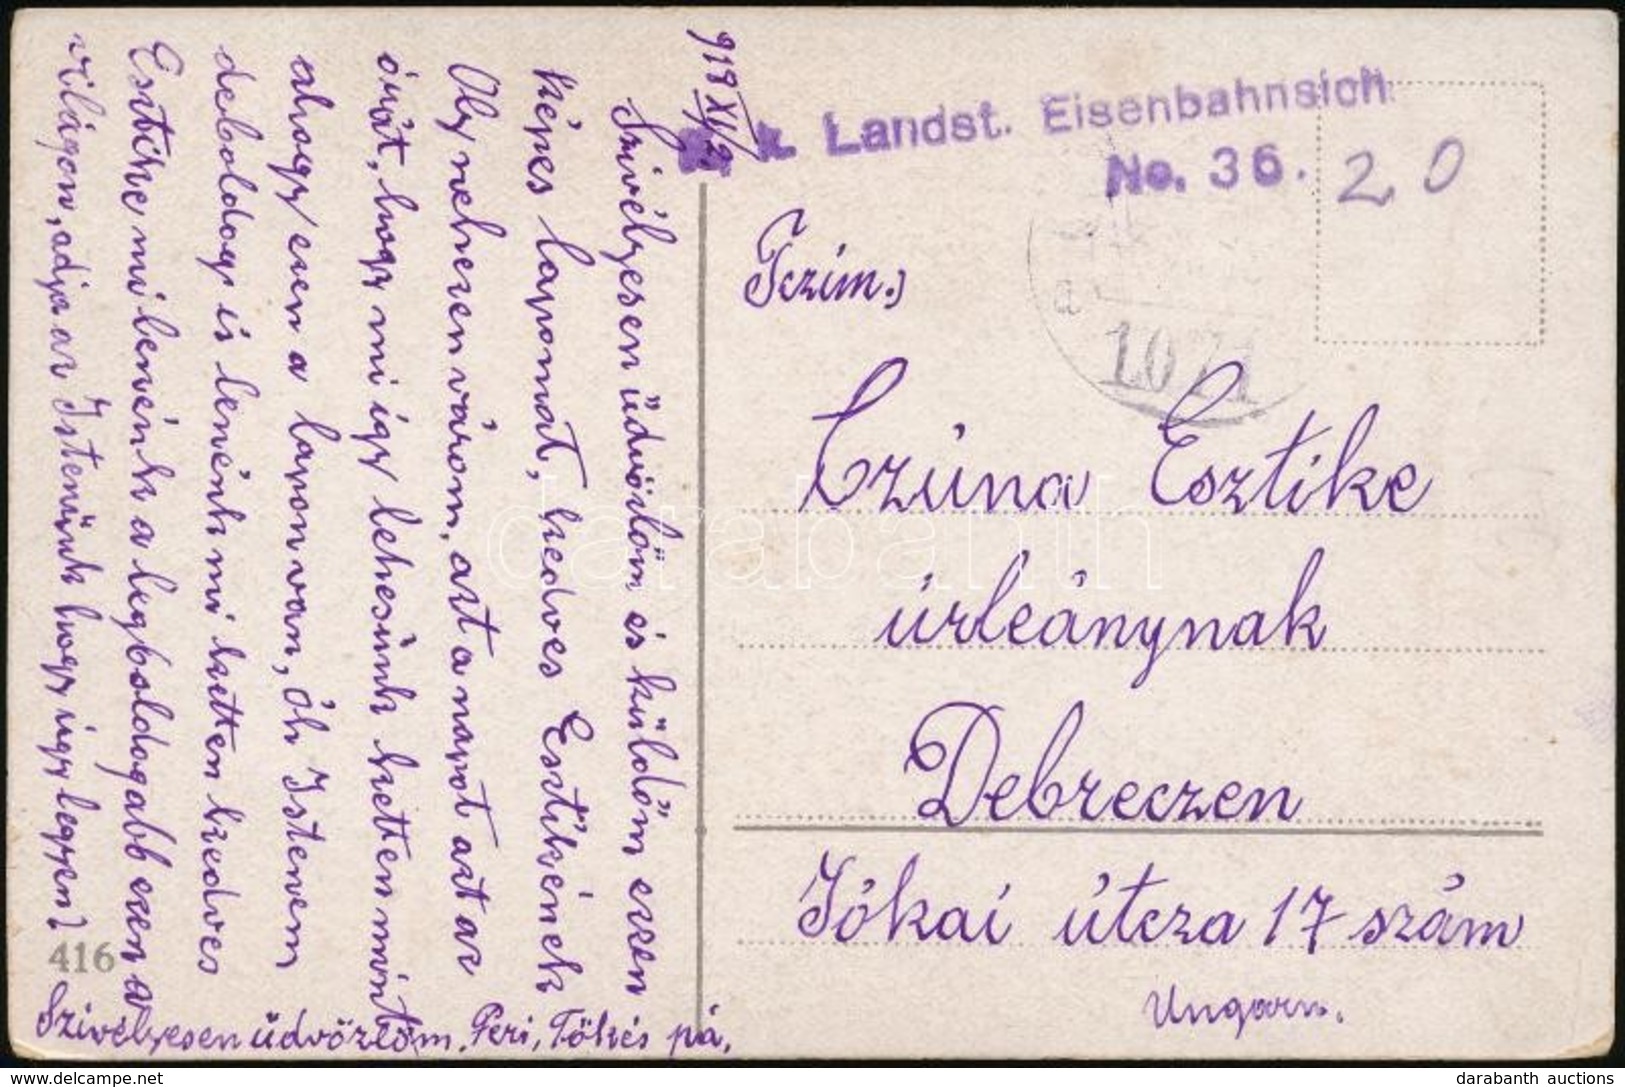 918 XII/2
Szivélyesen üdvözlöm és küldöm ezen
képes lapomat, kedves Esztikének
Oly nehezen várom, azt a napot azt az
órát, hogy mi így lehesünk ketten mint
ahogy ezen a lapon van, óh Istenem
deboldog is lenénk mi ketten kedves
Esztike mi lenénk a legboldogabb ezen a
világon, adja az Istenünk hogy úgy legyen?
Szivélyesen üdvözlöm. Feri, Tökés pá.
416
k. Landst. Eisenbahnsich
No. 36.
20
a
1071
Tczím.)
Czúna Esztike
úrleánynak
Debreczen
Jókai útcza 17 szám
Ungarn.
darabanth
darabanth auctions